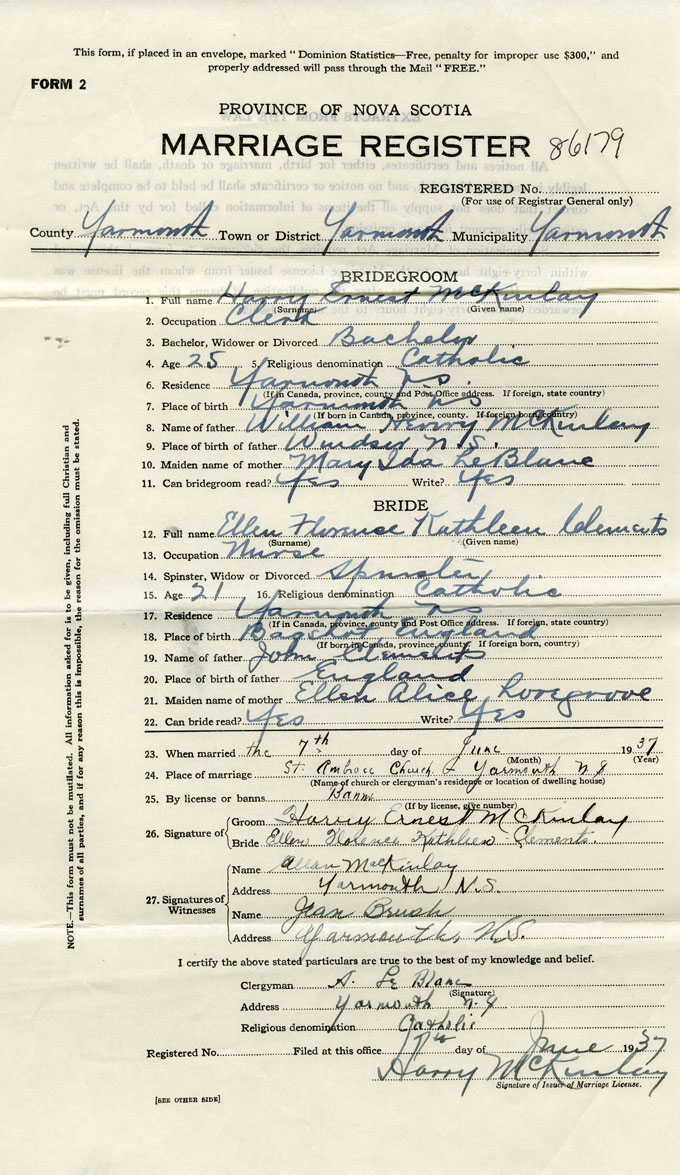 This form, if placed in an envelope, marked "Dominion Statistics—Free, penalty for improper use $300," and
properly addressed will pass through the Mail "FREE."
FORM 2
PROVINCE OF NOVA SCOTIA
MARRIAGE REGISTER 86179
REGISTERED No.
(For use of Registrar General only)
County Yarmouth Town or District Yarmouth Municipality Yarmouth
BRIDEGROOM
1. Full name Harry Ernest McKinlay
(Surname) (Given name)
2. Occupation Clerk
3. Bachelor, Widower or Divorced Bachelor
4. Age 25 5. Religious denomination Catholic
6. Residence Yarmouth N.S.
(If in Canada, province, county and Post Office address. If foreign, state country)
7. Place of birth Yarmouth N S
(If born in Canada, province, county. If foreign born, country)
8. Name of father William Henry McKinlay
9. Place of birth of father Windsor N.S.
10. Maiden name of mother Mary Ida LeBlanc
11. Can bridegroom read? Yes Write? Yes
BRIDE
12. Full name Ellen Florence Kathleen Clements
(Surname) (Given name)
13. Occupation Nurse
14. Spinster, Widow or Divorced Spinster
15. Age 21 16. Religious denomination Catholic
17. Residence Yarmouth N S
(If in Canada, province, county and Post Office address. If foreign, state country)
18. Place of birth Bagshot, England
(If born in Canada, province, county. If foreign born, country)
19. Name of father John Clements
20. Place of birth of father England
21. Maiden name of mother Ellen Alice Lovegrove
22. Can bride read? Yes Write? Yes
23. When married the 7th day of June 1937
(Month) (Year)
24. Place of marriage St. Ambrose Church - Yarmouth N S
(Name of church or clergyman's residence or location of dwelling house)
25. By license or banns Banns
(If by license, give number)
26. Signature of Groom Harry Ernest McKinlay
Bride Ellen Florence Kathleen Clements.
27. Signatures of Witnesses
Name Allan MacKinlay
Address Yarmouth N.S.
Name Jean Brush
Address Yarmouth, N.S.
I certify the above stated particulars are true to the best of my knowledge and belief.
Clergyman A. Le Blanc
(Signature)
Address Yarmouth N.S
Religious denomination Catholic
Registered No. Filed at this office 17th day of June 1937
Harry McKinlay
Signature of Issuer of Marriage License.
[SEE OTHER SIDE]
NOTE.—This form must not be mutilated. All information asked for is to be given, including full Christian and
surnames of all parties, and if for any reason this is impossible, the reason for the omission must be stated.